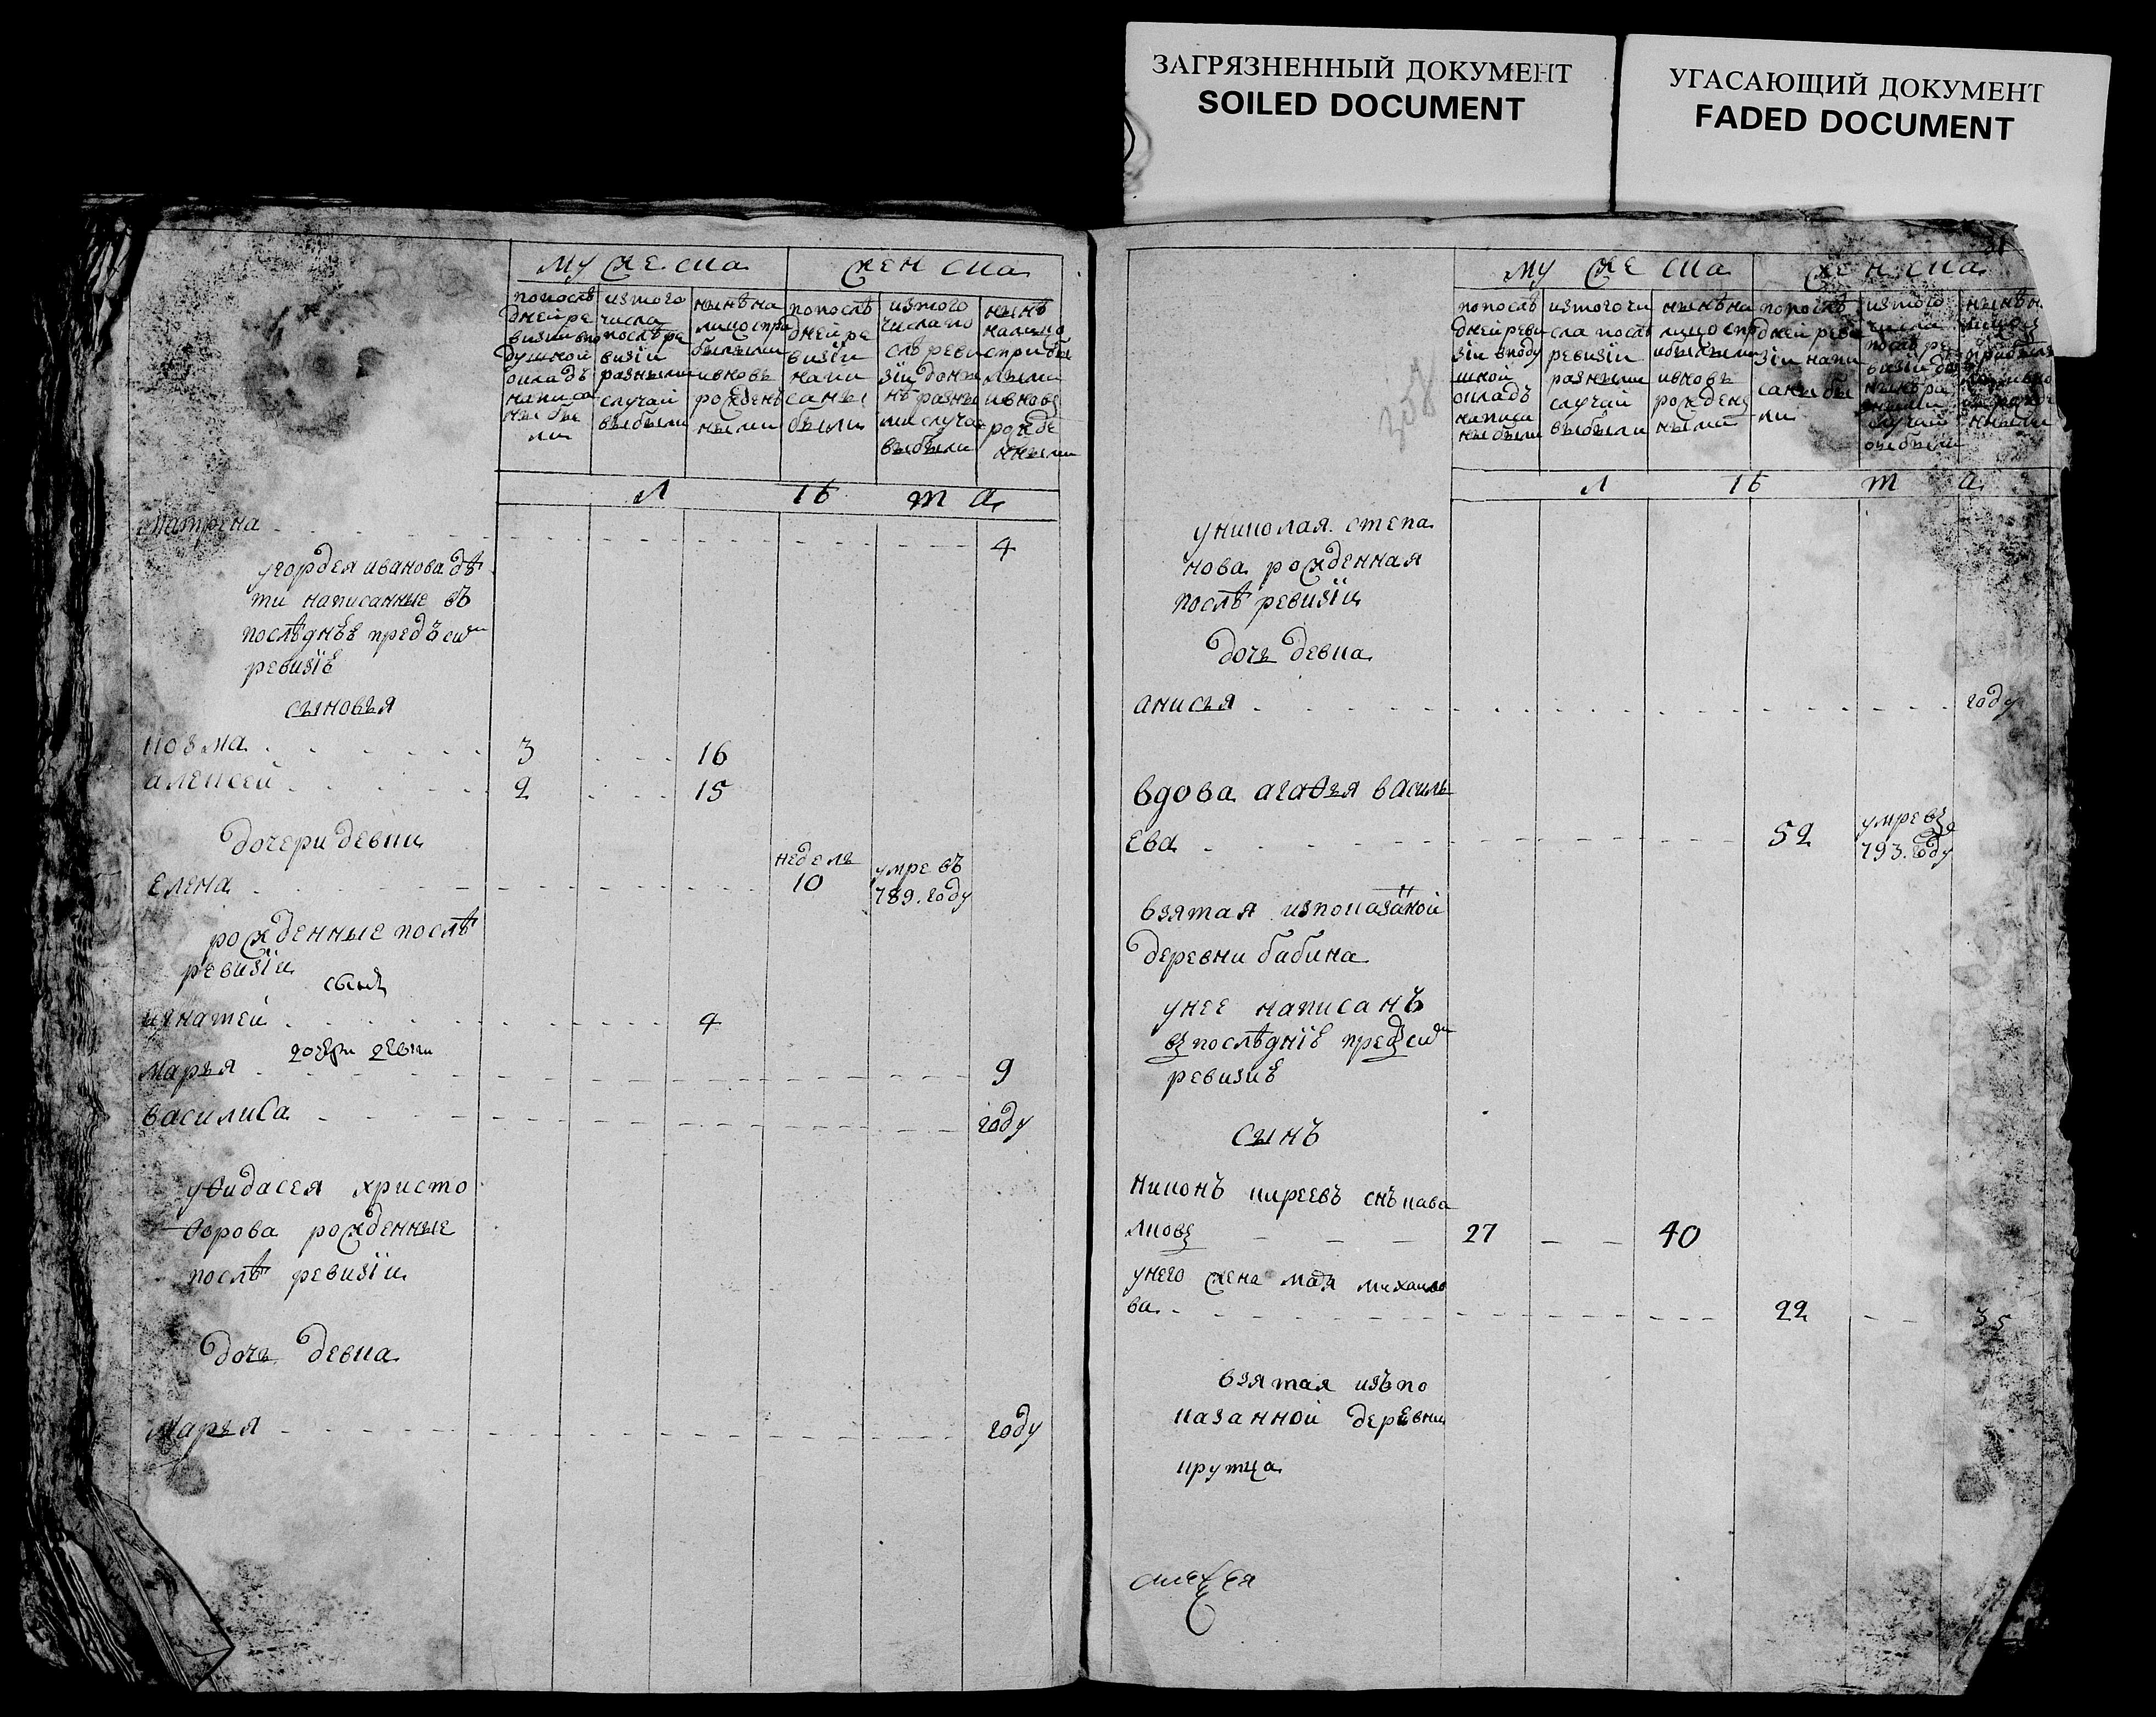 ЗАГРЯЗНЕННЫЙ ДОКУМЕНТ
SOILED DOCUMENT
УГАСАЮЩИЙ ДОКУМЕНТ
FADED DOCUMENT
мужеска
женска
попослѣ
дней ре
визии впо
душной
окладъ
написа
ны бы
ли
изтого
числа
послѣ ре
визіи
разными
случаи
выбыли
нынѣ на
лицо при
былыми
ивновь
рожденъ
ными
попослѣ
дней ре
визіи
напи
саны
были
изтого
числа по
слѣ реви
зіи доны
нѣ разны
ми случа
выбыли
нынѣ
налицо
сприбы
лыми
ивновъ
рожде
ными
лѣта
матрена 4
угордея иванова дѣ
ти написанные въ
послѣднѣѣ предъ сим
ревизіѣ
сыновья
козма 3 16
алексей 2 15
дочери девки
елена неделъ 10 умре въ 789. году
рожденные послѣ
ревизіи
сынъ
игнатей 4
дочери девки
марья 9
василиса году
уѳидасея христо
ѳорова рожденные
послѣ ревизіи
дочь девка
марья году
31
мужеска
женска
попослѣ
дней реви
зіи вподу
шной
окладъ
написа
ны были
изтого чи
сла послѣ
ревизіи
разными
случаи
выбыли
нынѣ на
лицо спр
ибылыми
ивновь
рожденъ
ными
попослѣ
дней реви
зіи напи
саны бы
ли
изтого
числа
послѣ ре
визіи до
выбыли
нынѣ н
ными
лѣта
униколая степа
нова рожденная
послѣ ревизіи
дочь девка
анисья году
вдова агаѳья василь
ева 52 умре въ 793. году
взятая изпоказаной
деревни бабина
унее написанъ
въ послѣдніѣ предъ сим
ревизиѣ
сынъ
никонъ киреевъ снъ пава
лковъ 27 40
унего жена мадя михаило
ва 22 35
взятая изъ по
казанной деревни
крутца